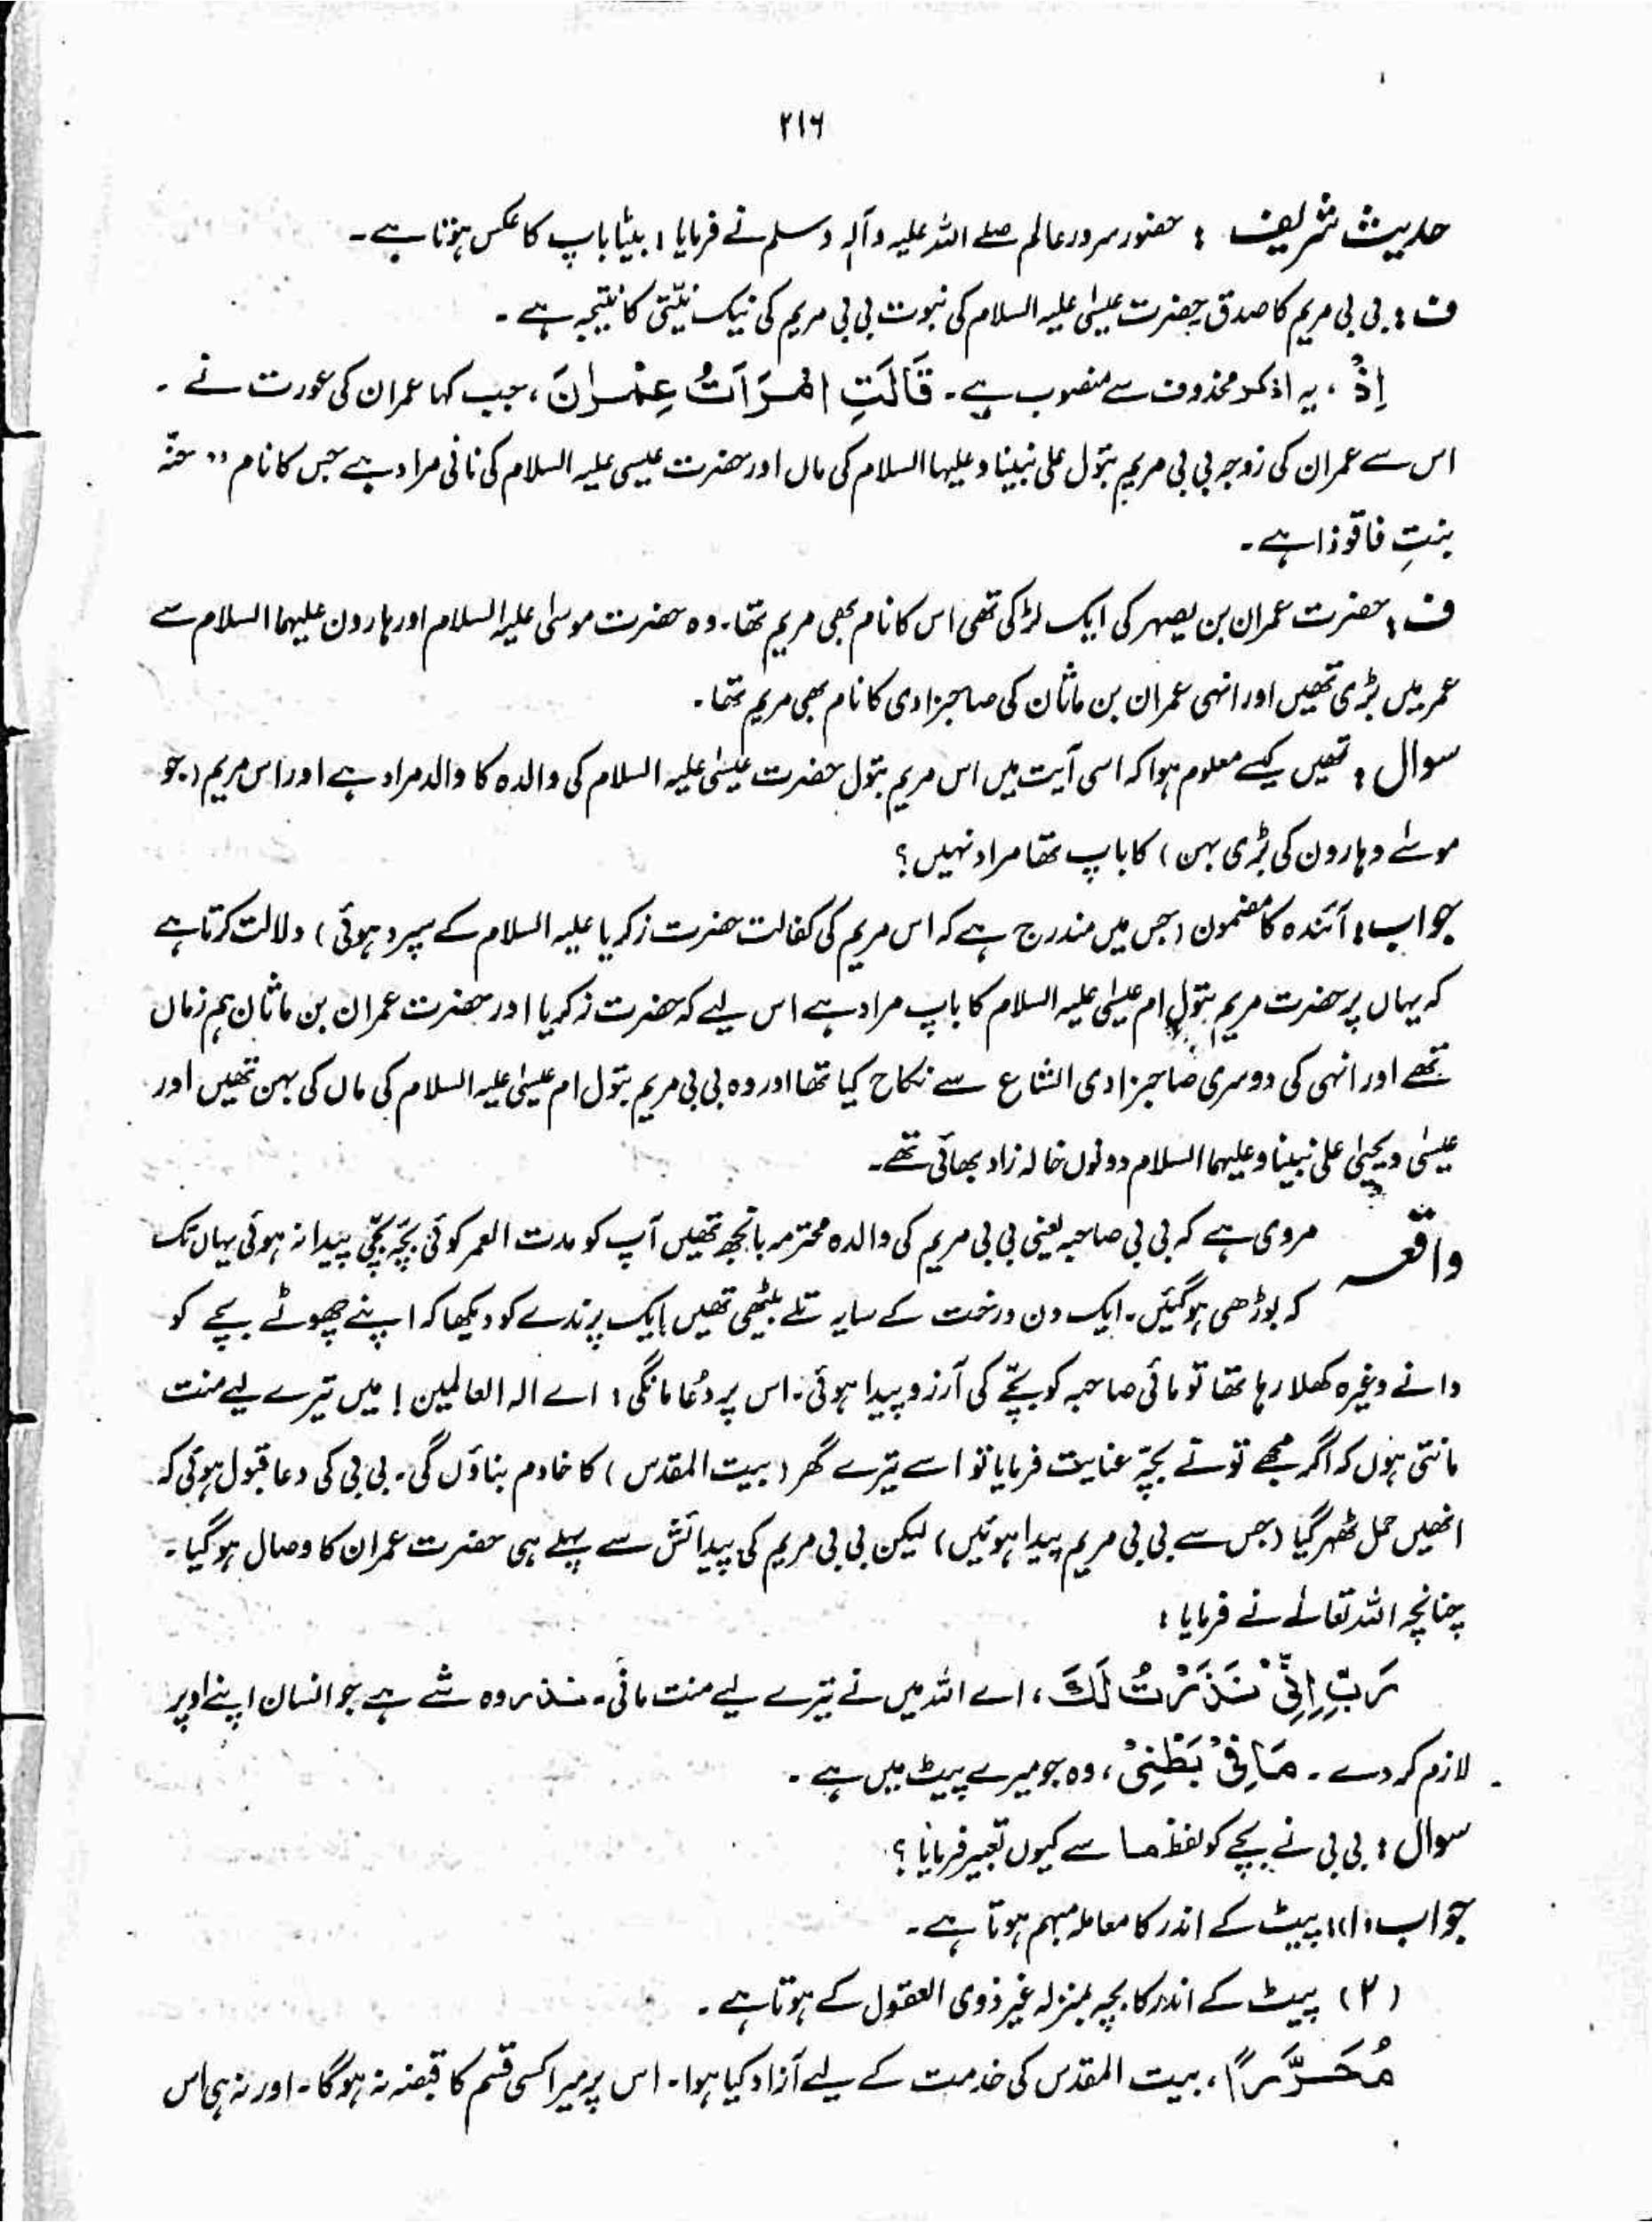 ۲۱۶
حدیث شریف : حضور سرور عالم صلے اللہ علیہ وآلہ وسلم نے فرمایا : بیٹا باپ کا عکس ہوتا ہے۔
ف : بی بی مریم کا صدق حضرت عیسٰی علیہ السلام کی نبوت بی بی مریم کی نیک نیّتی کا نتیجہ ہے۔
اِذْ ، یہ اذکر محذوف سے منصوب ہے۔ قَالَتِ امْرَاَتُ عِمْرٰنَ ، جب کہا عمران کی عورت نے ۔
اس سے عمران کی زوجہ بی بی مریم بتول علی نبینا وعلیہا السلام کی ماں اور حضرت عیسی علیہ السلام کی نانی مراد ہے جس کا نام " حنّہ
بنتِ فاقوذا ہے۔
ف : حضرت عمران بن یصہر کی ایک لڑکی تھی اس کا نام بھی مریم تھا۔ وہ حضرت موسٰی علیہ السلام اور ہارون علیہما السلام سے
عمر میں بڑی تھیں اور انہی عمران بن ماثان کی صاحبزادی کا نام بھی مریم تھا۔
سوال : تمھیں کیسے معلوم ہوا کہ اسی آیت میں اس مریم بتول حضرت عیسٰی علیہ السلام کی والدہ کا والد مراد ہے اور اس مریم (جو
موسٰے وہارون کی بڑی بہن ) کا باپ تھا مراد نہیں ؟
جواب : آئندہ کا مضمون (جس میں مندرج ہے کہ اس مریم کی کفالت حضرت زکریا علیہ السلام کے سپرد ہوئی ) دلالت کرتا ہے
کہ یہاں پر حضرت مریم بتول ام عیسٰی علیہ السلام کا باپ مراد ہے اس لیے کہ حضرت زکریا اور حضرت عمران بن ماثان ہم زماں
تھے اور انہی کی دوسری صاحبزادی الشاع سے نکاح کیا تھا اور وہ بی بی مریم بتول ام عیسٰی علیہ السلام کی ماں کی بہن تھیں اور
عیسٰی ویحیٰی علی نبینا وعلیہما السلام دونوں خالہ زاد بھائی تھے۔
واقعہ مروی ہے کہ بی بی صاحبہ یعنی بی بی مریم کی والدہ محترمہ بانجھ تھیں آپ کو مدت العمر کوئی بچّہ بچّی پیدا نہ ہوئی یہاں تک
کہ بوڑھی ہوگئیں۔ ایک دن درخت کے سایہ تلے بیٹھی تھیں ایک پرندے کو دیکھا کہ اپنے چھوٹے بچے کو
دانے وغیرہ کھلا رہا تھا تو مائی صاحبہ کو بچّے کی آرزو پیدا ہوئی۔ اس پر دُعا مانگی : اے الہ العالمین ! میں تیرے لیے منت
مانتی ہوں کہ اگر مجھے تونے بچّہ عنایت فرمایا تو اسے تیرے گھر (بیت المقدس ) کا خادم بناؤں گی۔ بی بی کی دعا قبول ہوئی کہ
انھیں حمل ٹھہر گیا (جس سے بی بی مریم پیدا ہوئیں ) لیکن بی بی مریم کی پیدائش سے پہلے ہی حضرت عمران کا وصال ہوگیا۔
چنانچہ اللہ تعالےٰ نے فرمایا :
رَبِّ اِنِّیْ نَذَرْتُ لَکَ ، اے اللہ میں نے تیرے لیے منت مانی۔ نذر وہ شے ہے جو انسان اپنے اوپر
لازم کر دے ۔ مَا فِیْ بَطْنِیْ ، وہ جو میرے پیٹ میں ہے ۔
سوال : بی بی نے بچے کو لفظ ما سے کیوں تعبیر فرمایا ؟
جواب (۱) : پیٹ کے اندر کا معاملہ مبہم ہوتا ہے۔
(۲) پیٹ کے اندر کا بچہ بمنزلہ غیر ذوی العقول کے ہوتا ہے۔
مُحَرَّرًا ، بیت المقدس کی خدمت کے لیے آزاد کیا ہوا۔ اس پر میرا کسی قسم کا قبضہ نہ ہوگا۔ اور نہ ہی اس